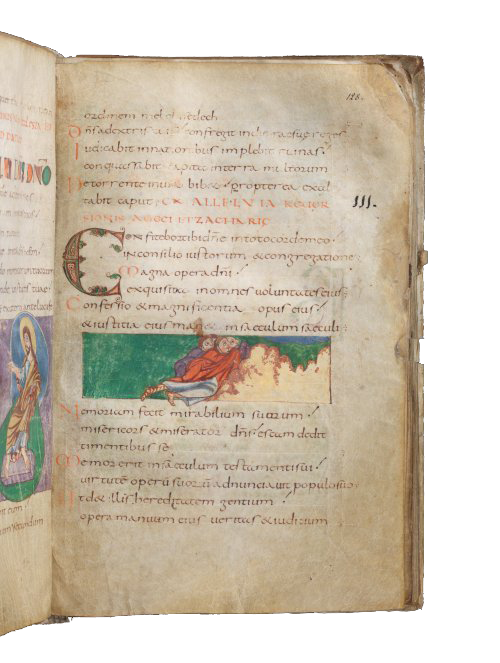 128.
ordinem melchisedech
Dn̄s a dextris tuis confregit in die irae suae reges
Iudicabit in nationibus implebit ruinas
conquassabit capita in terra multorum
De torrente in via bibet propterea exal
tabit caput CX ALLELUIA REVER
SIONIS AGGEI ET ZACHARIE
111.
Confitebor tibi dn̄e in toto corde meo
in consilio iustorum & congregatione
Magna opera dn̄i
exquisita in omnes voluntates eius
Confessio & magnificentia opus eius
& iustitia eius manet in saeculum saeculi
Memoriam fecit mirabilium suorum
misericors & miserator dn̄s escam dedit
timentibus se
Memor erit in saeculum testamenti sui
virtutem operū suorū adnunciavit populo suo
Ut det illis hereditatem gentium
opera manuum eius veritas & iudicium